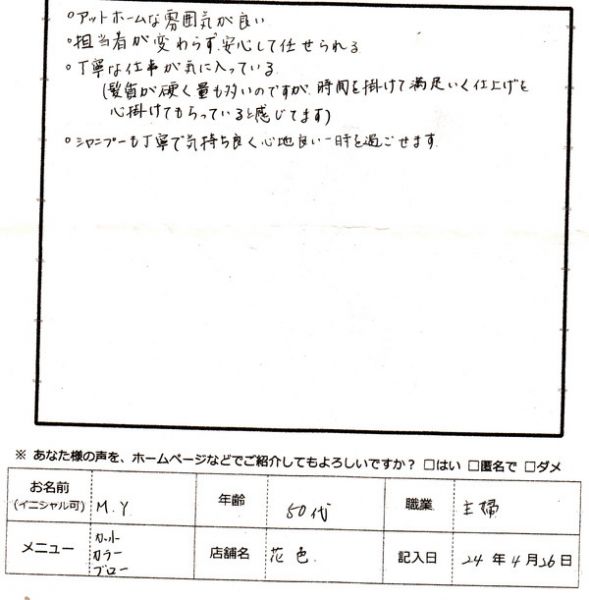 ○アットホームな雰囲気が良い
○担当者が変わらず、安心して任せられる
○丁寧な仕事が気に入っている
(髪質が硬く量も多いのですが、時間を掛けて満足いく仕上げを
心掛けてもらっていると感じてます)
○シャンプーも丁寧で気持ち良く心地良い一時を過ごせます
※ あなた様の声を、ホームページなどでご紹介してもよろしいですか？ □はい □匿名で □ダメ
お名前 (イニシャル可) M.Y. 年齢 50代 職業 主婦
メニュー カット カラー ブロー 店舗名 花色 記入日 24年4月26日